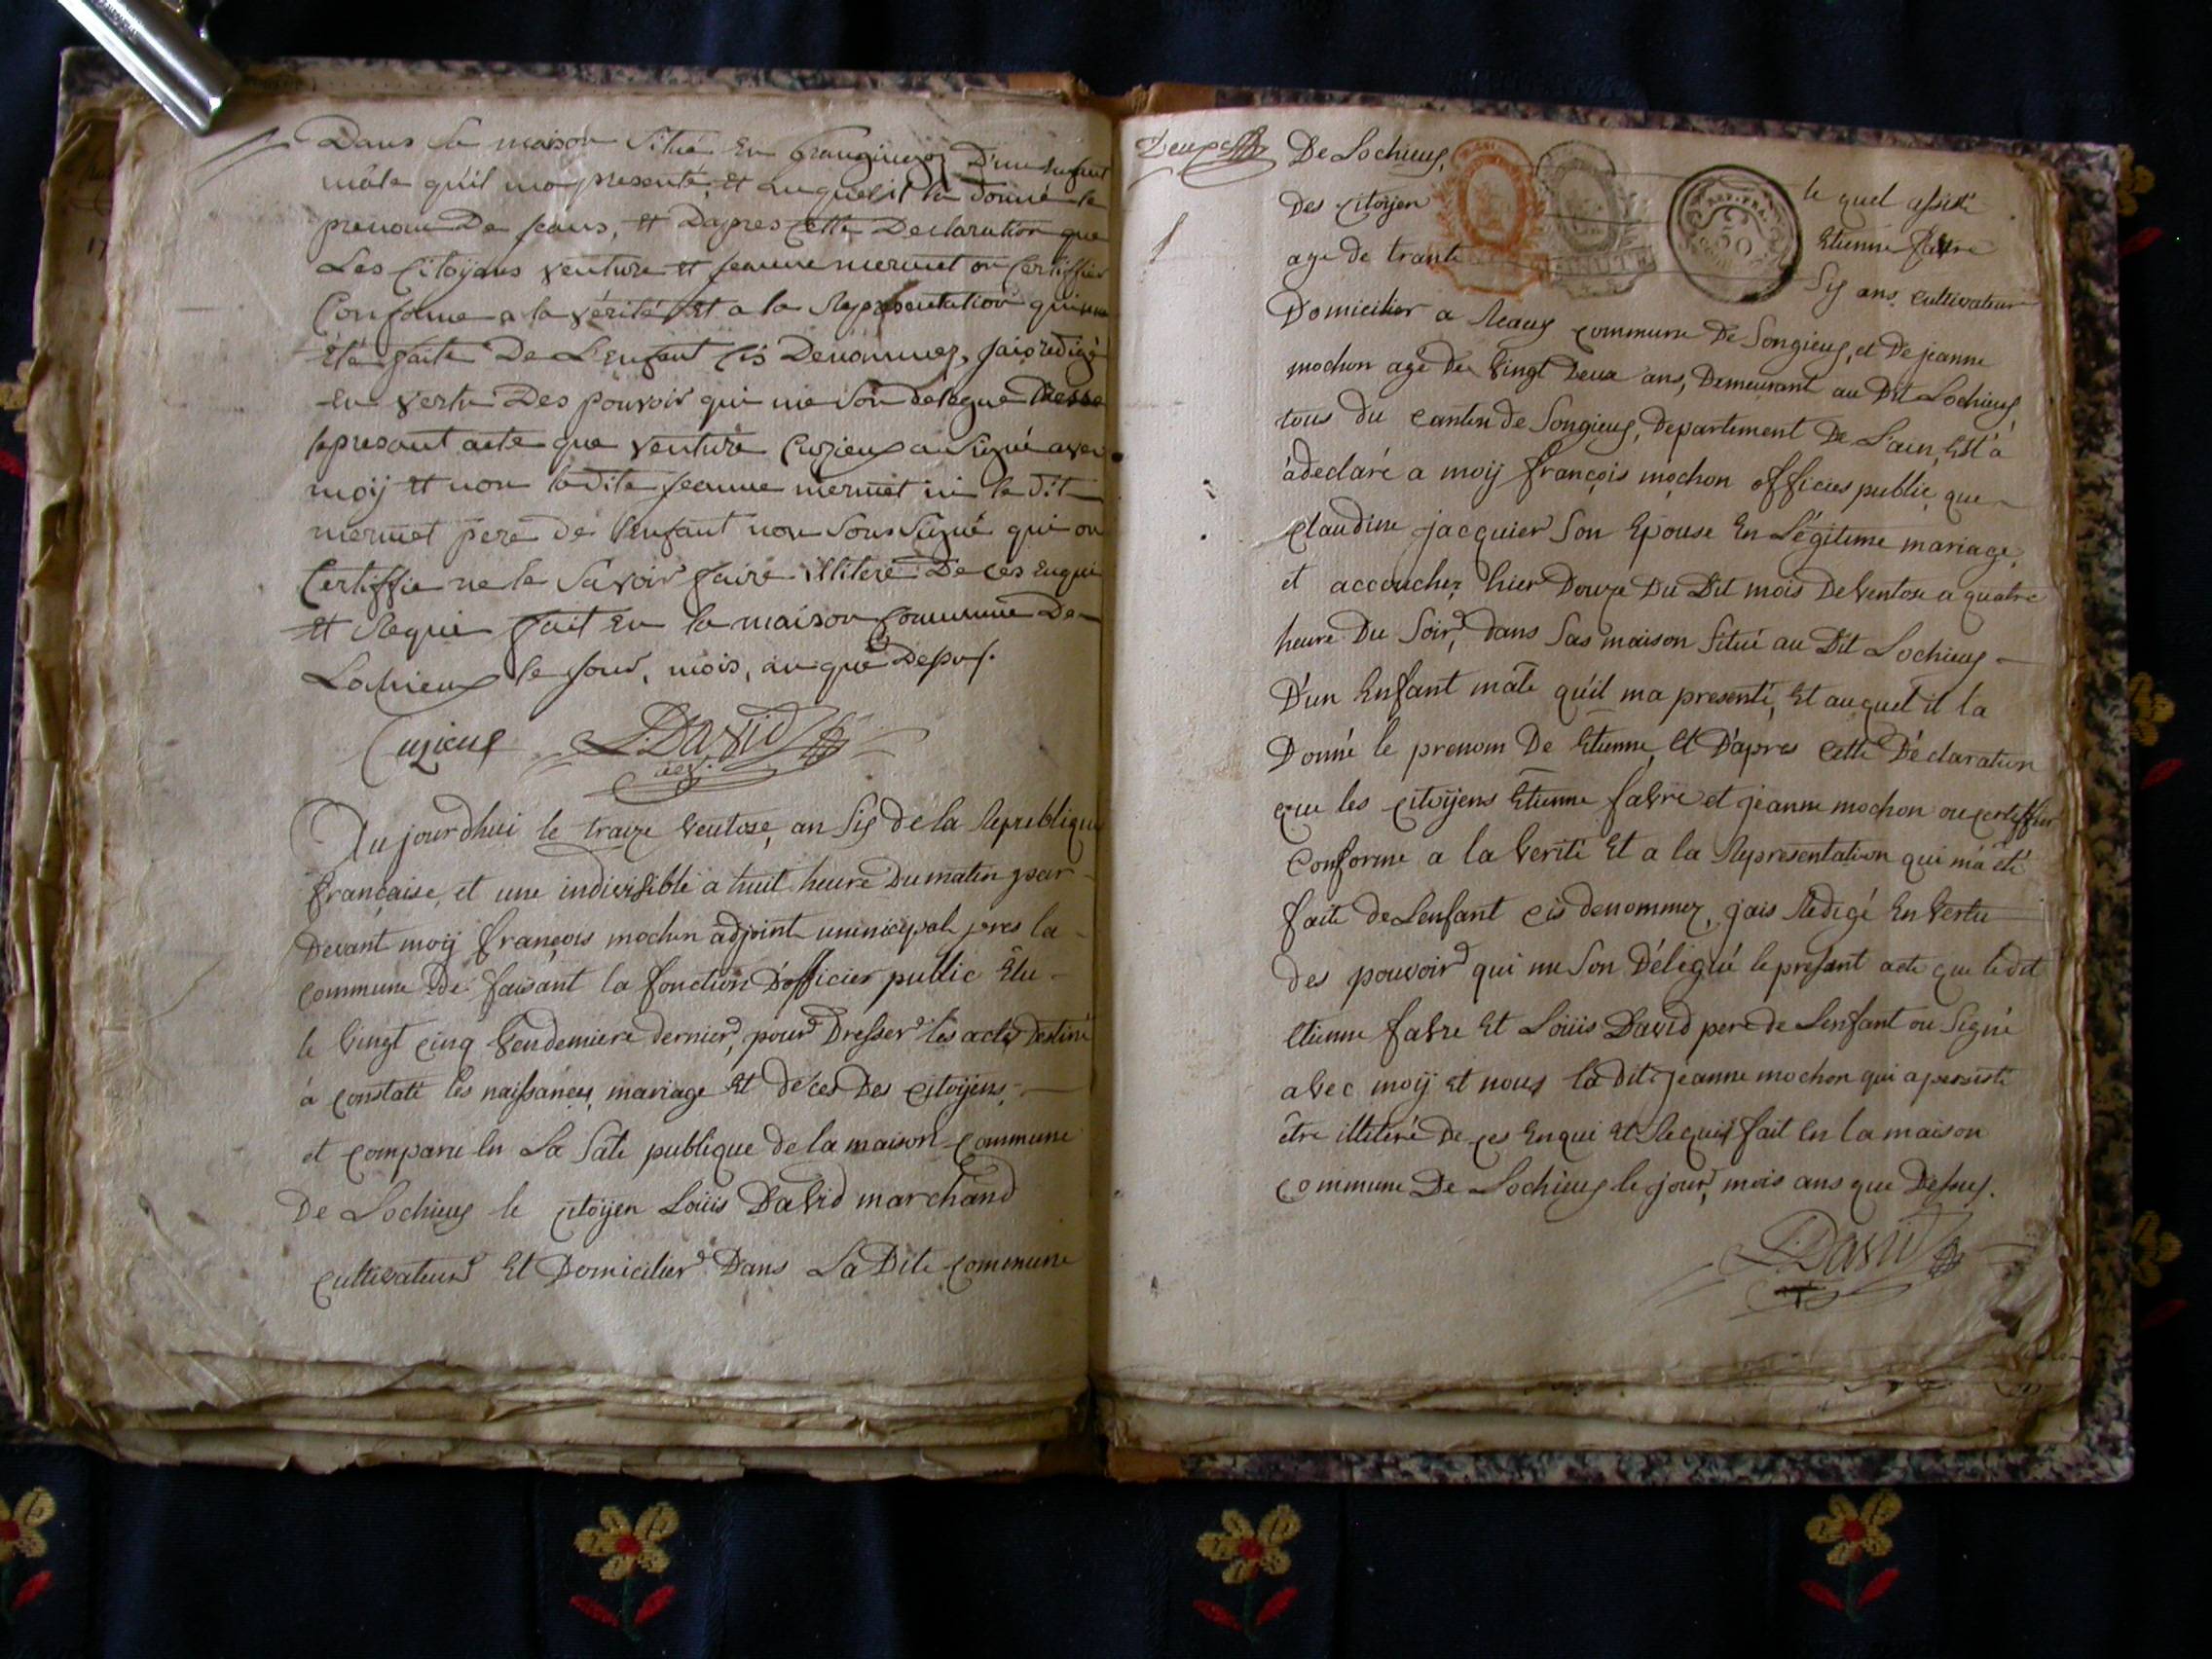 Dans la maison Situé En D'un Enfant
mâle qu'il ma presenté, Et auquel il la donné le
prenom De jeans, Et Dapres Cette Declaration que
Les Citoÿens venture Et jeanne mermet on Certiffier
Conforme a la vérité Et a la Representation qui ma
été faite De L'enfant Cis Denommez, jais redigé
En vertu Des pouvoir qui me Son délégué
le presant acte que venture Cuzieux a Signé avec
moÿ Et non la dite jeanne mermet ni le dit
mermet pere de l'enfant non Sous Signé qui on
Certiffie ne le Savoir faire illiteré De ces Enqui
Et Requi fait En la maison Commune De
Lochieux le jour, mois, an que Desus.
Cuzieux L. David
Au jourdhui le traize Ventose, an Six de la Republique
française, et une indivisible a huit heure Du matin par
Devant moÿ françois mochon adjoint municipal pres la
commune de faisant la fonction D'officier public Elu
le Vingt cinq Vendemiere dernier, pour Dresser les actes Destiné
à constate les naissances, mariage Et décès Des citoÿens,
et comparu En La Sale publique de la maison commune
De Lochieux le citoÿen Loüis David marchand
cultivateur Et Domicilier Dans La Dite commune
Deux
De Lochieux, le quel assisté
Des citoÿen Etienne fabre
age de trante Six ans, cultivateur
REP. FRA.
50
MINUTE
Domicilier a commune De Songieux, et De jeanne
mochon age de Vingt Deux ans, Demeurant au Dit Lochieux,
tous du canton de Songieux, Departement De L'ain, Est a
adeclaré a moÿ françois mochon officier public, que
claudine jacquier Son Epouse En Légitime mariage,
et accouchez hier Douze Du Dit mois De Ventose a quatre
heure Du Soir, dans Sas maison Situé au Dit Lochieux
D'un Enfant mâle qu'il ma presenté, Et auquel il la
Donné le prenom De Etienne, Et D'apres Cette Déclaration
que les citoÿens Etienne fabre et jeanne mochon on certiffier
Conforme a la Verité Et a la Representation qui m'a été
faite de Lenfant cis denommez, jais Rédigé En Vertu
des pouvoir qui me Son Délégué le present acte que ledit
Etienne fabre Et Loüis David pere de Lenfant on Signé
avec moÿ Et nous la dite jeanne mochon qui a persisté
être illiteré De ces Enqui Et Requis fait En la maison
commune De Lochieux le jour, mois ans que Desus.
L. David